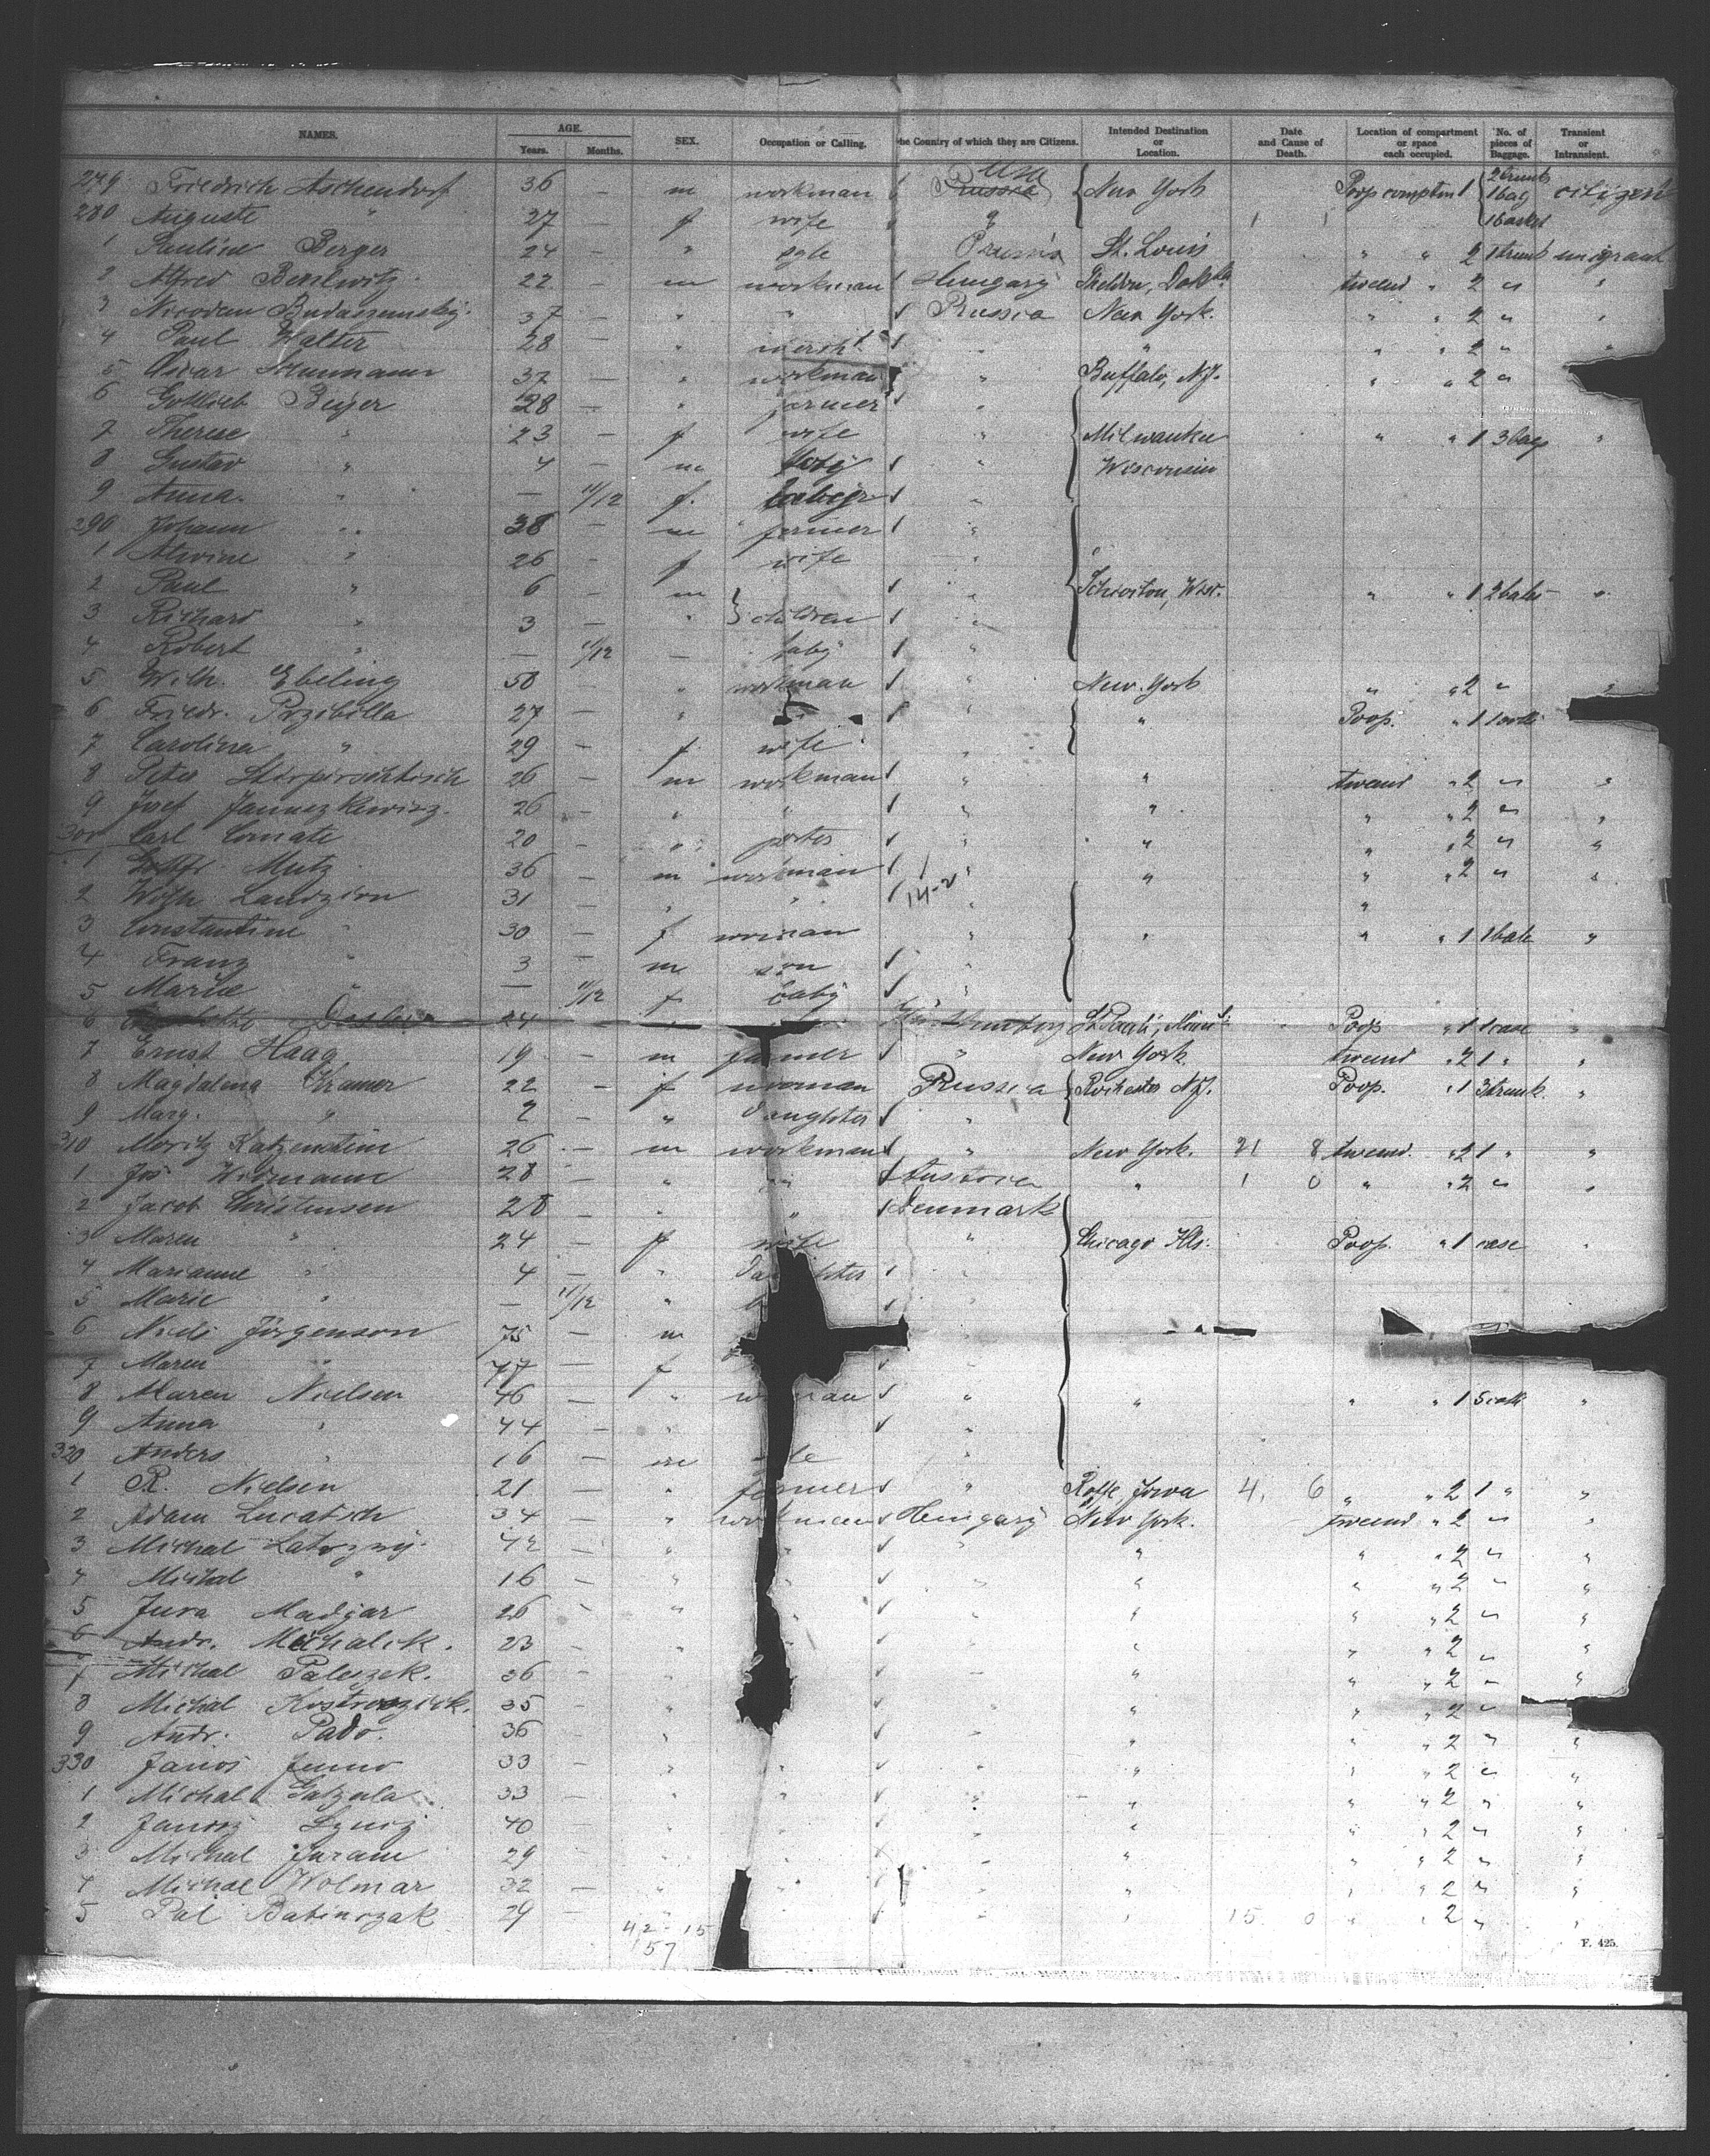 NAMES. AGE. Years. Months. SEX. Occupation or Calling. the Country of which they are Citizens. Intended Destination or Location. Date and Cause of Death. Location of compartment or space each occupied. No. of pieces of Baggage. Transient or Intransient.
279 Friedrich Aschendorf 36 — m workman Prussia USA New York Poop comptmt 1 2 trunks 1 bag 1 basket citizen
280 Auguste " 27 — f wife "
1 Pauline Berger 24 — " sgle Prussia St. Louis " " 2 1 trunk imigrant
2 Alfred 22 — m workman Hungary Sheldon, Dakota tweend " 2 " "
3 37 — " " Russia New York. " " 2 " "
4 Paul Walter 28 — " " " " " 2 " "
5 Oscar Schumann 37 — " workman " Buffalo, N.Y. " " 2 "
6 Gottlieb Beyer 28 — " farmer "
7 Therese " 23 — f wife " Milwaukee " " 1 3 bags "
8 Gustav " 4 — m boy " Wisconsin
9 Anna. " — 11/12 f. baby "
290 Johann " 38 — m farmer "
1 Alwine " 26 — f wife "
2 Paul " 6 — m " Wisc. " " 1 2 bales "
3 Richard " 3 — " children "
4 Robert " — 11/12 — baby "
5 Wilh. Ebeling 50 — " workman " New York " " 2 " "
6 Friedr. Przibilla 27 — " " " Poop. " 1
7 Carolina " 29 — f wife "
8 Peter 26 — m workman " " tweend " 2 " "
9 Josef 26 — " " " " " " 2 " "
300 Carl Comate 20 — " porter " " " " 2 " "
1 Gottfr. Mutz 36 — m workman " " " " 2 " "
2 Wilh Landzion 31 — " " 14-2 " "
3 Constantine " 30 — f woman " " " " 1 1 bale "
4 Franz " 3 — m son "
5 Marie " — 11/12 f baby "
6 24 — Poop " 1 1 case "
7 Ernst Haag 19 — m farmer " New York. tweend " 2 1 " "
8 Magdalena Kramer 22 — f woman Prussia Rochester N.Y. Poop. " 1 3 trunk. "
9 Marg. " 2 — " daughter "
310 Moritz Katzenstein 26 — m workman " New York. 21 8 tweend. " 2 1 " "
1 Jos Widmann 28 — " " Austria " 1 0 " " 2 " "
2 Jacob Christensen 28 — " " Denmark
3 Maren " 24 — f wife " Chicago Ills. Poop. " 1 case "
4 Marianne " 4 — " "
5 Marie " — 11/12 "
6 Niels Jörgenson 75 — m
7 Maren " 77 — f "
8 Maren Nielsen 46 — " woman " " " " 1 "
9 Anna " 44 — " "
320 Anders " 16 — m "
1 R. Nielsen 21 — " farmer " Rolfe, Jowa 4. 6 " " 2 1 " "
2 Adam Lucatsch 34 — " workman Hungary New York. tweend " 2 " "
3 Michal 42 — " " " " " 2 " "
4 Michal " 16 — " " " " " 2 " "
5 Jura Madjar 26 — " " " " " 2 " "
6 Andr. Michalik. 23 — " " " " 2 " "
7 Michal Paleszek. 36 — " " " " 2 " "
8 Michal 35 — " " " " " 2 "
9 Andr. Pado. 36 — " " " " " 2 " "
330 Janos 33 — " " " " " " 2 " "
1 Michal 33 — " " " " " " 2 " "
2 40 — " " " " " " 2 " "
3 Michal 29 — " " " " " " 2 " "
4 Michal Wolmar 32 — " " " " " " 2 " "
5 Pal Babinczak 29 — " " " " 15 0 " " 2 " "
42-15
57
F. 425.